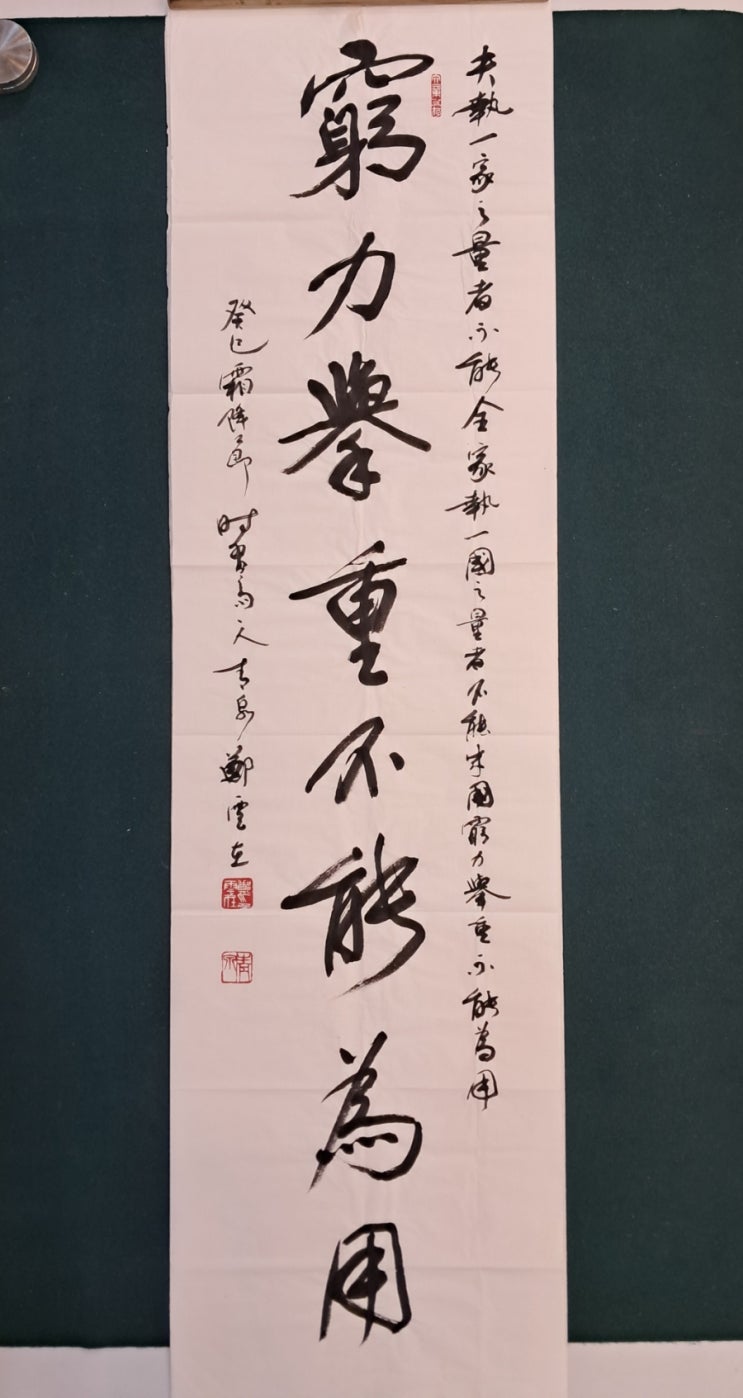 夫執一家之量者不能全家執一國之量者不能成國窮力舉重不能為用
窮力舉重不能為用
癸巳霜降節時客南天青泉鄭雲在